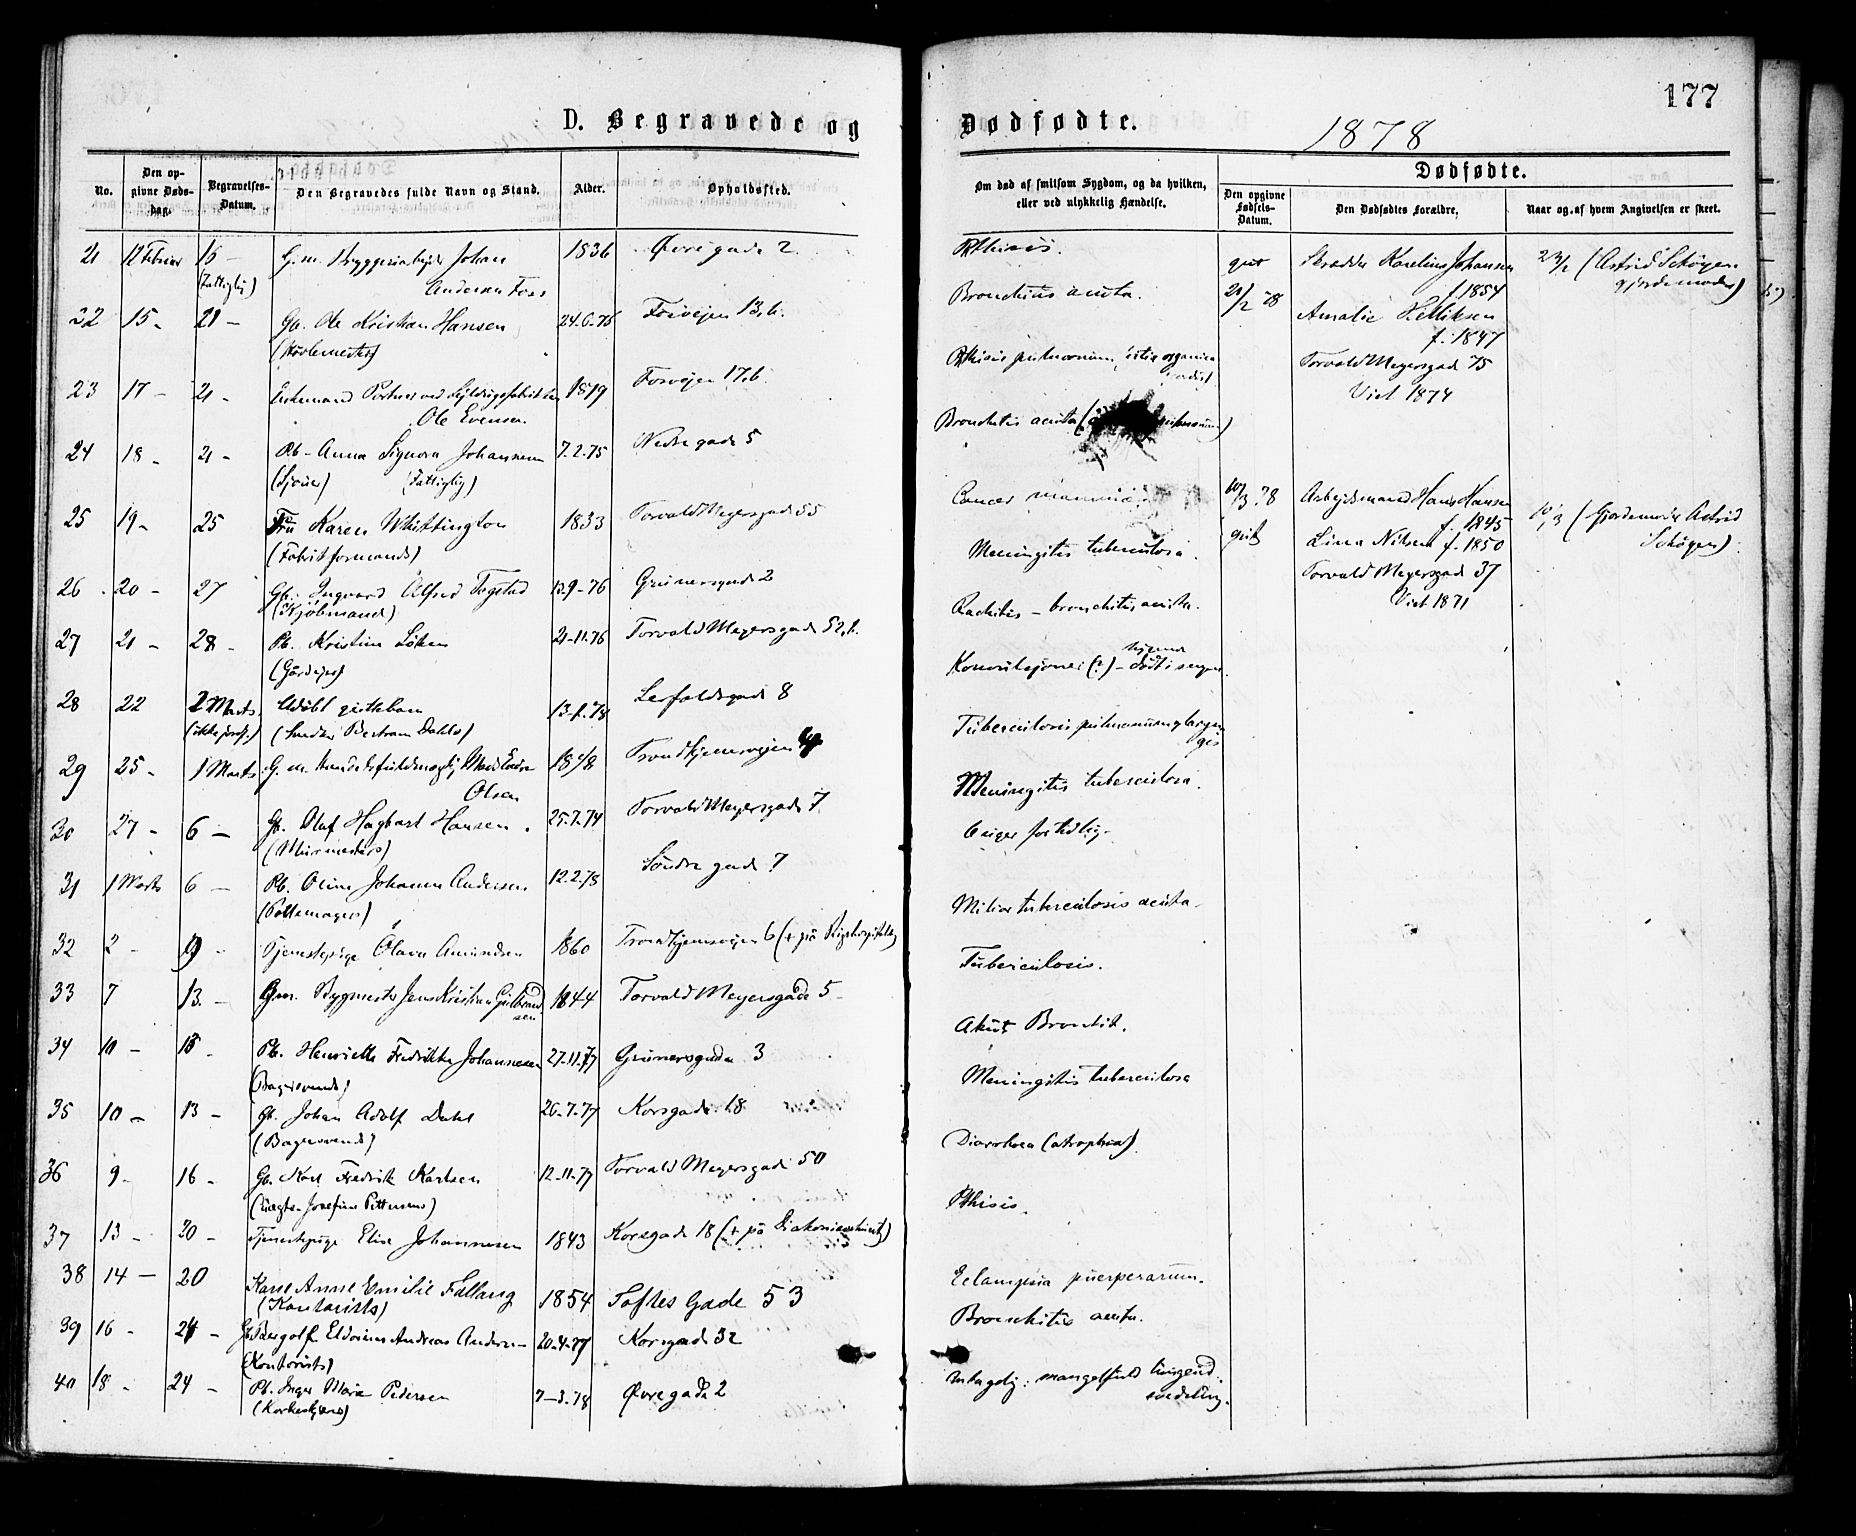 177
D. Begravede og Dødfødte.
1878
No.
Den opgivne Dødsdag.
Begravelses-Datum.
Den Begravedes fulde Navn og Stand.
Alder.
Opholdssted.
Om død af smitsom Sygdom, og da hvilken, eller ved ulykkelig Hændelse.
Dødfødte.
Den opgivne Fødsels-Datum.
Den Dødfødtes Forældre.
Naar og af hvem Angivelsen er skeet.
21 12 Februar 16 – G.m. Bryggeriarbejder Johan 1836 Øvre gade 2.
(Fattiglig) Andersen Foss
22 15 – 21 – Gb. Ole Kristian Hansen 24.6.76 Fosvejen 13,b.
23 17 – 21 – Enkemand Portner ved 1819 Fosvejen 17,b.
Ole Evensen
24 18 – 21 – Pb. Anna Signora Johannesen 7.2.75 Nedre gade 5
(Fattiglig)
25 19 – 25 Fru Karen Whittington 1833 Torvald Meyersgade 55
(Fabrikformands)
26 20 – 27 Gb. Ingvard Alfred Fogstad 13.9-76 Grünersgade 2
(Kjøbmand)
27 21 – 28 – Pb. Kristine Løken 21-11.76 Torvald Meyersgade 52,b.
(Gårdejer)
28 22 2 Marts Udøbt guttebarn 13.1.78 Lerfaldsgade 8
(ikke jordf.) (Snedker Bertram Dahls)
29 25 – 1 Marts G.m. Olsen 1848 Trondhjemsvejen
30 27 – 6 – Gb. Olaf Hagbart Hansen. 25.7.74 Torvald Meyersgade 7.
(Murmesters)
31 1 Marts 6 – Pb. Oline Johanne Andersen 12.2.78 Søndre gade 7
(Pottemagers)
32 2 – 9 – Tjenestepige Olava Amundsen 1860 Trondhjemsvejen 6 (+ på Rigshospitalet)
33 7 13. – Gm. Bygmester Jens Kristian Gulbrandsen 1844 Torvald Meyersgade 5
34 10 – 15 – Pb. Henriette Fredrikke Johannesen 27.11.77 Grünersgade 3
(Bagersvends)
35 10 – 13 – Gb. Johan Adolf Dahl 26-7-77 Korsgade 18
(Bagersvends)
36 9 – 16 – Gb. Karl Fredrik Karlsen 12-11-77 Torvald Meyersgade 50
(Uægte. Josefine Pettersens)
37 13 – 20 – Tjenestepige Elise Johannesen 1843 Korsgade 18 (+ på Diakonissehuset)
38 14 – 20 Kone Anne Emilie Fallang 1854 Toftes Gade 53
(Kontorists)
39 16 – 24 – Gb. Eldorius Andreas Andersen 20-4-77 Korsgade 32
(Kontorists)
40 18 – 24 – Pb. Inger Marie Pedersen 7-3.78 Øvregade 2
Phthisis.
Bronchitis acuta.
Phthisis pulmonum, vitia organica cordis
Bronchitis acuta
Cancer mammæ.
Meningitis tuberculosa.
Rachitis – bronchitis acuta.
Konvulsjoner (?) – død i sengen
Tuberculosis pulmonum & laryngis
Meningitis tuberculosa.
Miliær tuberculosis acuta.
Tuberculosis.
Akut Bronkit.
Meningitis tuberculosa
Diarrhoea (atrophia)
Phthisis.
Eclampsia puerperarum.
Bronchitis acuta.
mangelfuld
gut 21/2 78
Skrædder Karelius Johansen
f. 1854
Amalie Helliksen
f. 1847
Torvald Meyersgade 75
Viet 1874
23/2 (Astrid Schøyen
gjordemoder)
10/3 78 gut
Arbejdsmand Hans Hansen
f. 1845
Lina Nilsen f. 1850
Torvald Meyersgade 37
Viet 1871
10/3 (Gjordemoder Astrid
Schøyen)